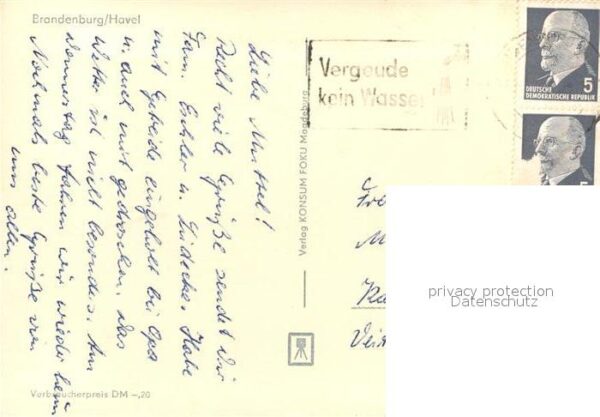 Brandenburg/Havel
Liebe Muttel!
Recht viele Grüße sendet Dir
Fam. Eichler u. Lüdecke. Habe
mit Getreide eingeholt bei Opa
u. auch mit gedroschen. Das
Wetter ist nicht besonders. Am
Donnerstag fahren wir wieder heim
Nochmals beste Grüße von
uns allen.
Verbraucherpreis DM -,20
Verlag KONSUM FOKU Magdeburg
Vergeude
kein Wasser
5
DEUTSCHE
DEMOKRATISCHE REPUBLIK
5
privacy protection
Datenschutz